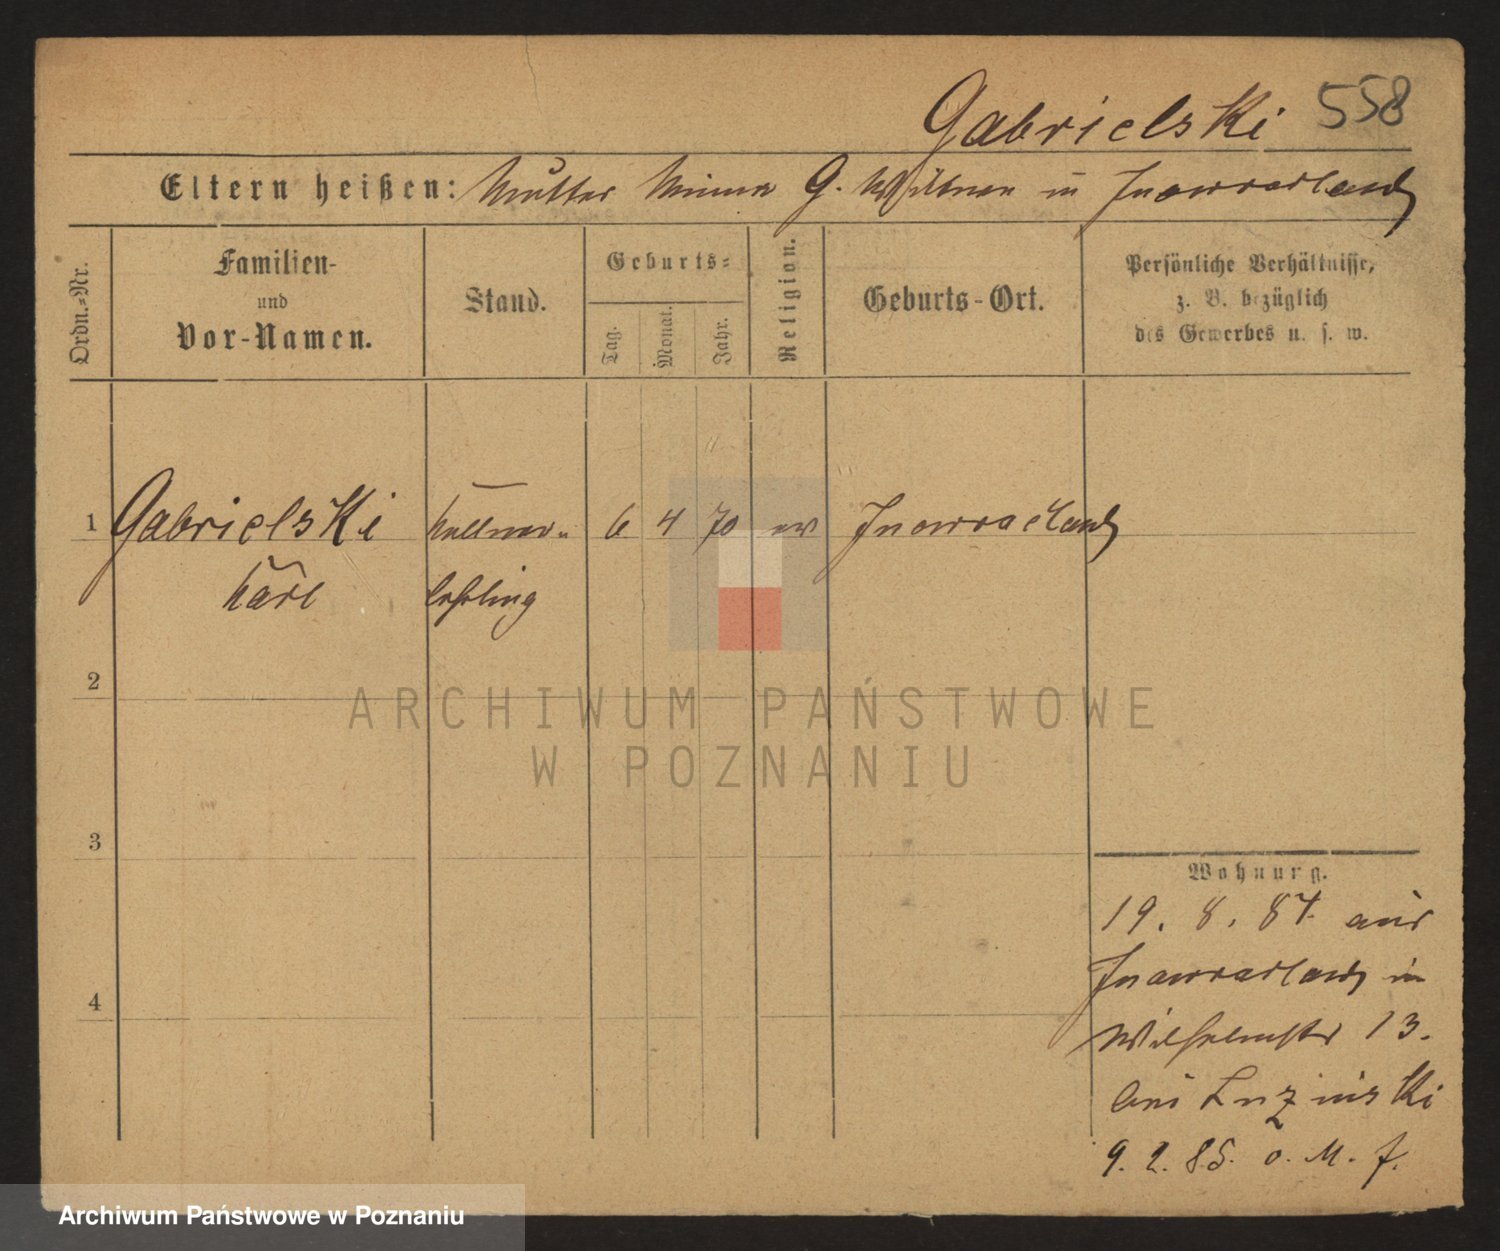 Gabrielski 558
Eltern heißen: Mutter Minna G. Wittwe in Inowraclaw
Ordn.-Nr.
Familien-
und
Vor-Namen.
Stand.
Geburts-
Tag.
Monat.
Jahr.
Religion.
Geburts-Ort.
Persönliche Verhältnisse,
z. B. bezüglich
des Gewerbes u. s. w.
1 Gabrielski Kellner- 6 4 70 ev Inowraclaw
Karl lehrling
2
3
4
Wohnung.
19. 8. 84 aus
Inowraclaw in
Wilhelmstr 13.
bei
9. 2. 85. o. M. f.
ARCHIWUM PAŃSTWOWE
W POZNANIU
Archiwum Państwowe w Poznaniu